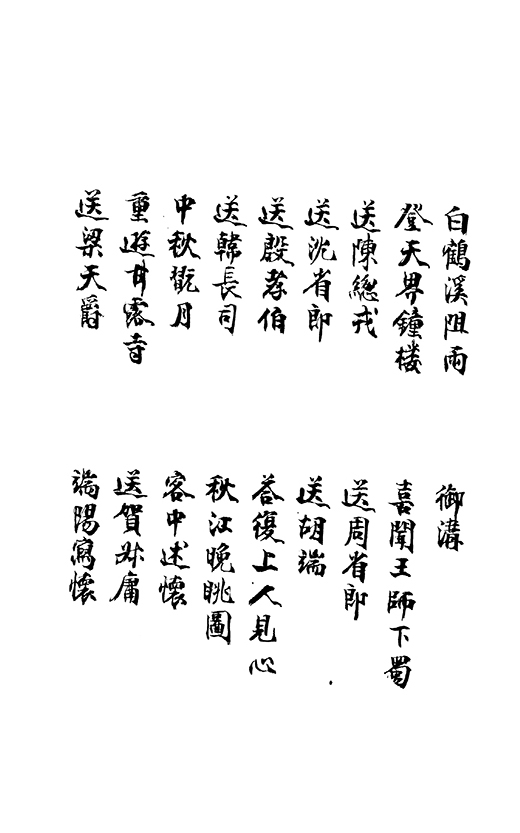 白鶴溪阻雨
登天界鐘楼
送陳總戎
送沈省郎
送殷孝伯
送韓長司
中秋翫月
重遊甘露寺
送梁天爵
御溝
喜聞王師下蜀
送周省郎
送胡端
荅復上人見心
秋江晚眺圖
客中述懷
送賀叔庸
端陽寫懷